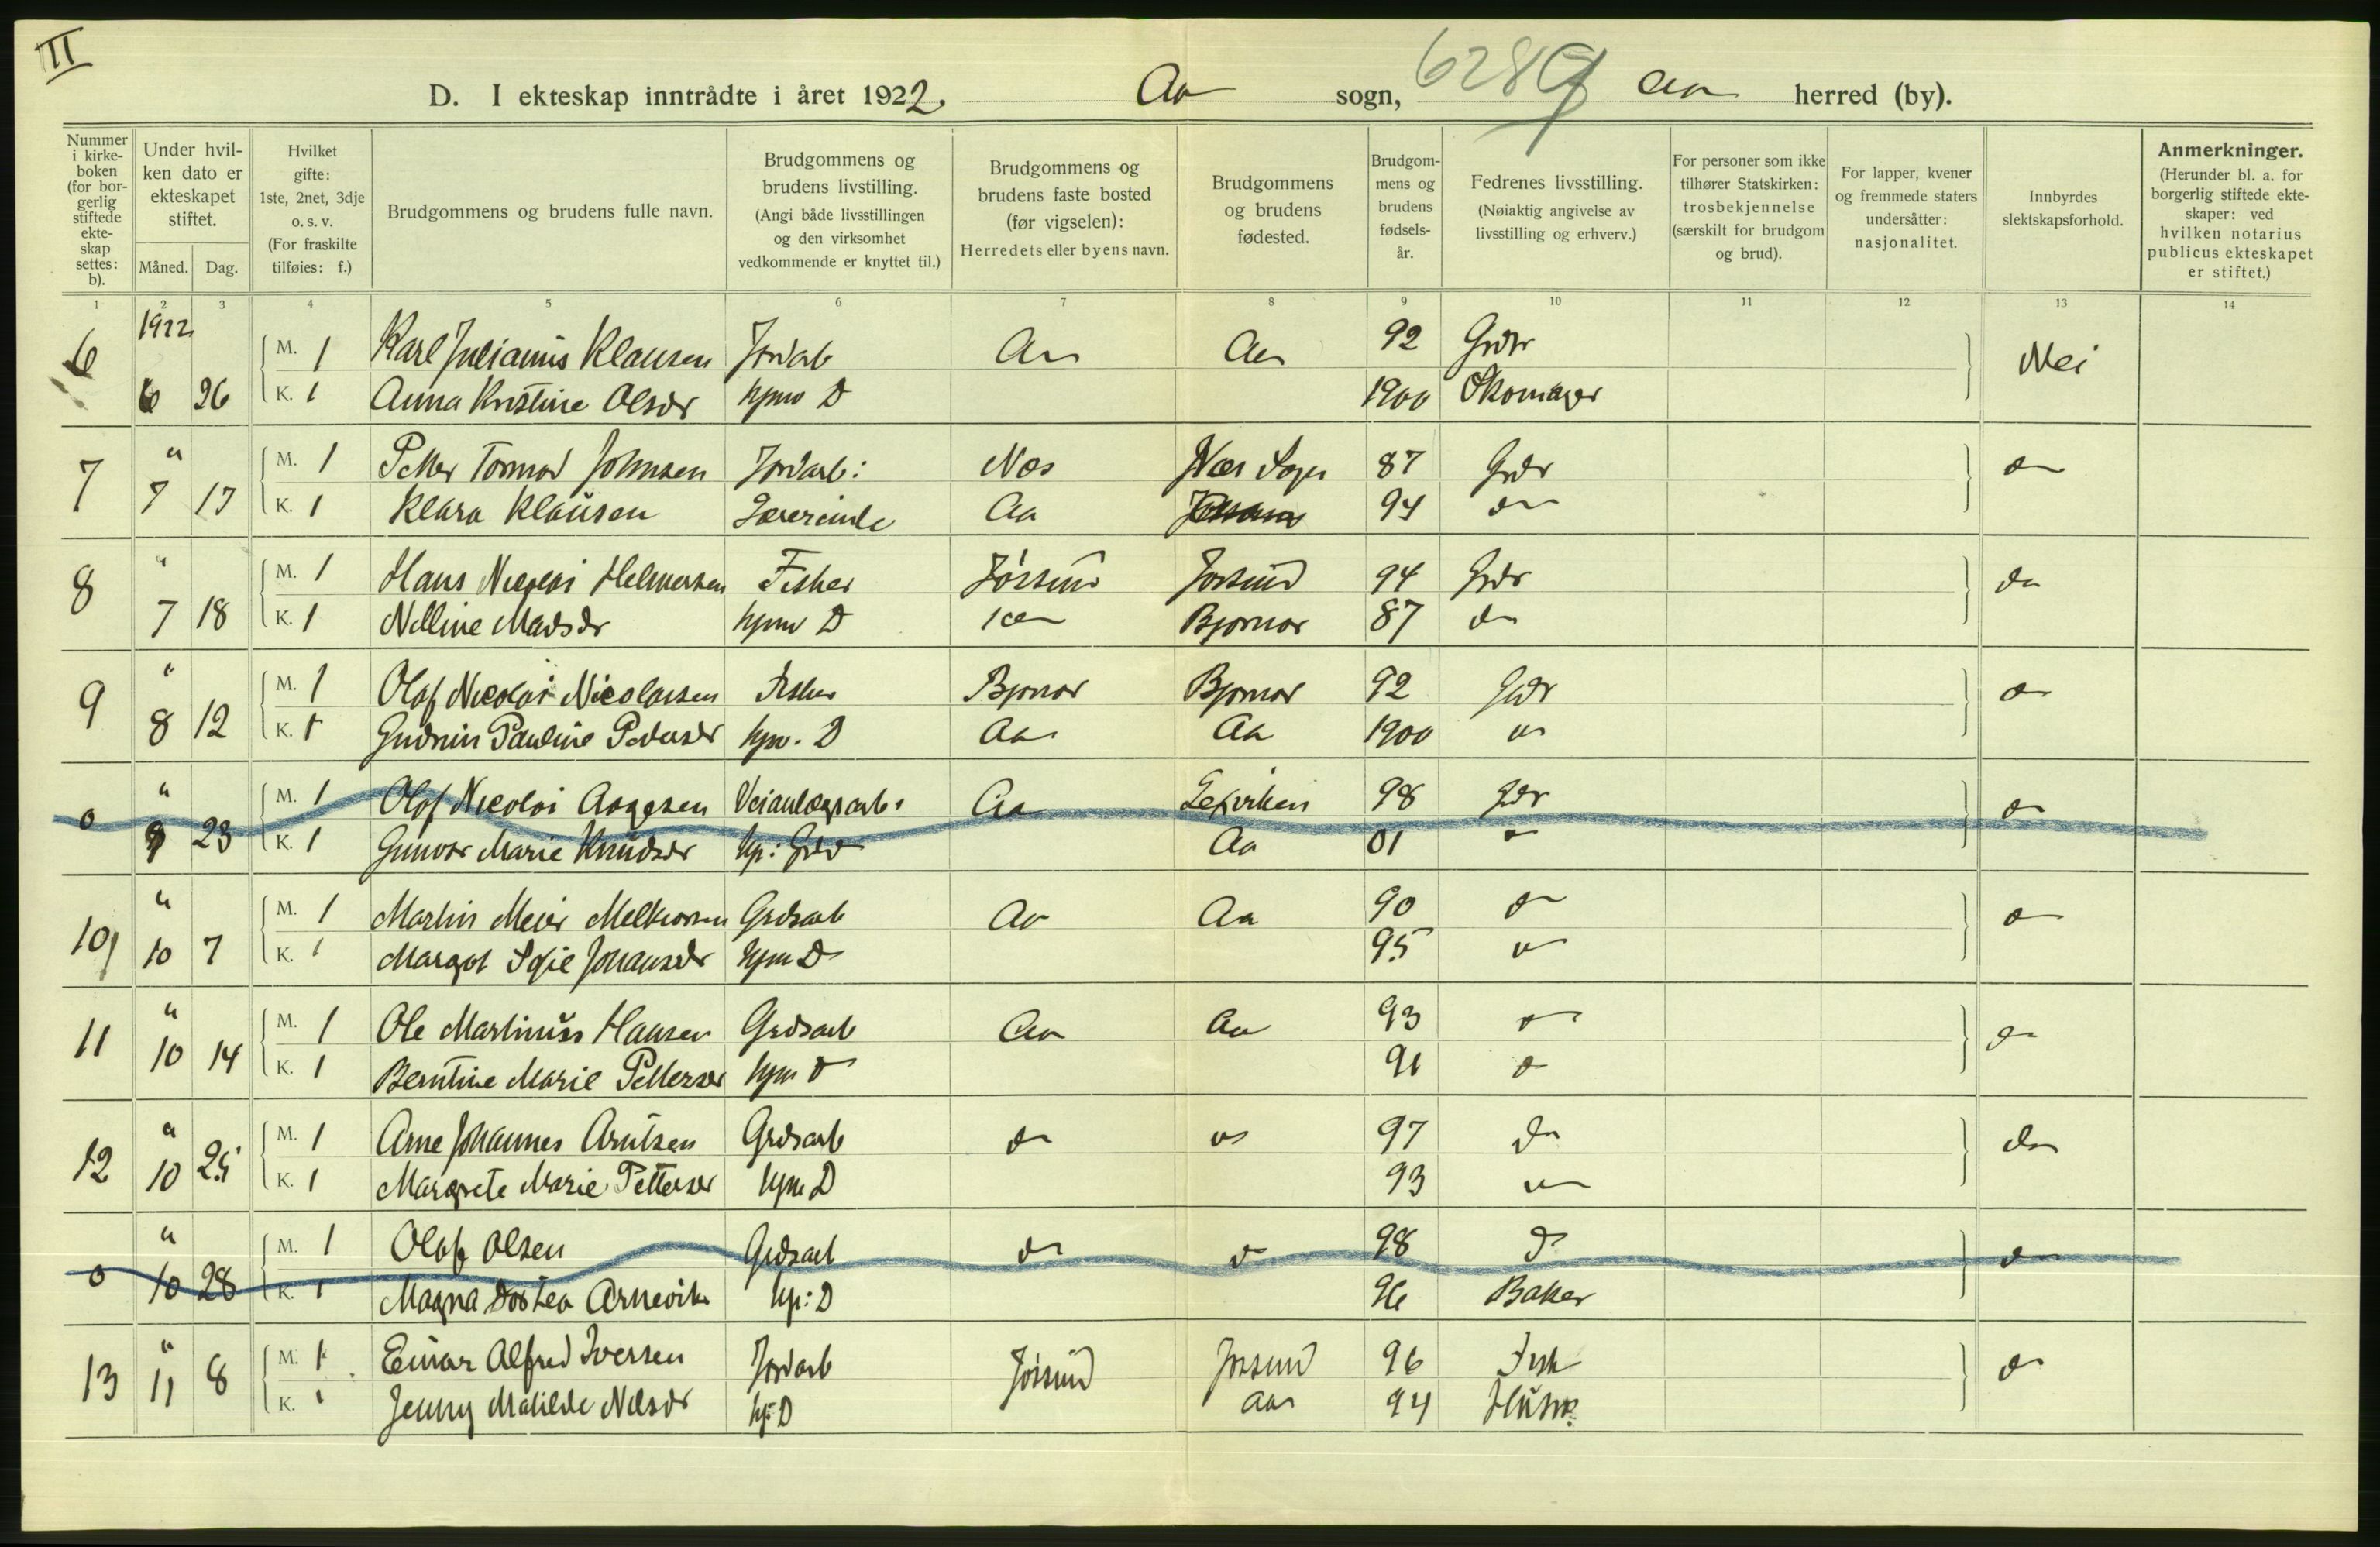 II
D. I ekteskap inntrådte i året 1922. Aa sogn, 6289 Aa herred (by).
Nummer i kirke-boken (for bor-gerlig stiftede ekte-skap settes: b).
Under hvil-ken dato er ekteskapet stiftet.
Måned. Dag.
Hvilket gifte: 1ste, 2net, 3dje o. s. v. (For fraskilte tilføies: f.)
Brudgommens og brudens fulle navn.
Brudgommens og brudens livstilling. (Angi både livsstillingen og den virksomhet vedkommende er knyttet til.)
Brudgommens og brudens faste bosted (før vigselen): Herredets eller byens navn.
Brudgommens og brudens fødested.
Brudgom-mens og brudens fødsels-år.
Fedrenes livsstilling. (Nøiaktig angivelse av livsstilling og erhverv.)
For personer som ikke tilhører Statskirken: trosbekjennelse (særskilt for brudgom og brud).
For lapper, kvener og fremmede staters undersåtter: nasjonalitet.
Innbyrdes slektskapsforhold.
Anmerkninger. (Herunder bl. a. for borgerlig stiftede ekte-skaper: ved hvilken notarius publicus ekteskapet er stiftet.)
1 2 3 4 5 6 7 8 9 10 11 12 13 14
1922
6 M. 1 Karl Julianus Klausen Jordarb Aa Aa 92 Grdr Nei
6 26 K. 1 Anna Kristine Olsdr hjmv D 1900 Skomager
7 " M. 1 Petter Tormod Johnsen Jordarb: Nes Nes Sogn 87 Grdr do
7 17 K. 1 Klara Klausen Lærerinde Aa 94 do
8 " M. 1 Hans Nicolai Helmersen Fisker Jøssund Jossund 94 Grdr do
7 18 K. 1 Nelline Madsdr hjmv D Bjornor 87 do
9 " M. 1 Olaf Nicolai Nicolaisen Fisker Bjornor Bjornor 92 Grdr do
8 12 K. 1 Gudrun Pauline Pedersdr hjv. D Aa Aa 1900 do
0 " M. 1 Olaf Nicolai Aagesen Veianlægsarb. Aa Leksviken 98 Grdr do
9 23 K. 1 Gunvor Marie Knudsdr Aa 01 do
10 " M. 1 Martin Meier Melkiorsen Grdsarb Aa Aa 90 do do
10 7 K. 1 Margot Sofie Johansdr hjm D 95 do
11 " M. 1 Ole Martinius Hansen Grdsarb Aa Aa 93 do do
10 14 K. 1 Berntine Marie Pettersdr hjm D 91 do
12 " M. 1 Arne Johannes Arntsen Grdsarb do do 97 do do
10 25 K. 1 Margrete Marie Pettersdr hjm D 93 do
0 " M. 1 Olaf Olsen Grdsarb do do 98 do do
10 28 K. 1 Magna Dortea Arnevik hj: D 96 Baker
13 " M. 1 Einar Alfred Iversen Jordarb Jøssund Jossund 96 Fisk do
11 8 K. 1 Jenny Matilde Nilsdr hj: D Aa 94 Husm.